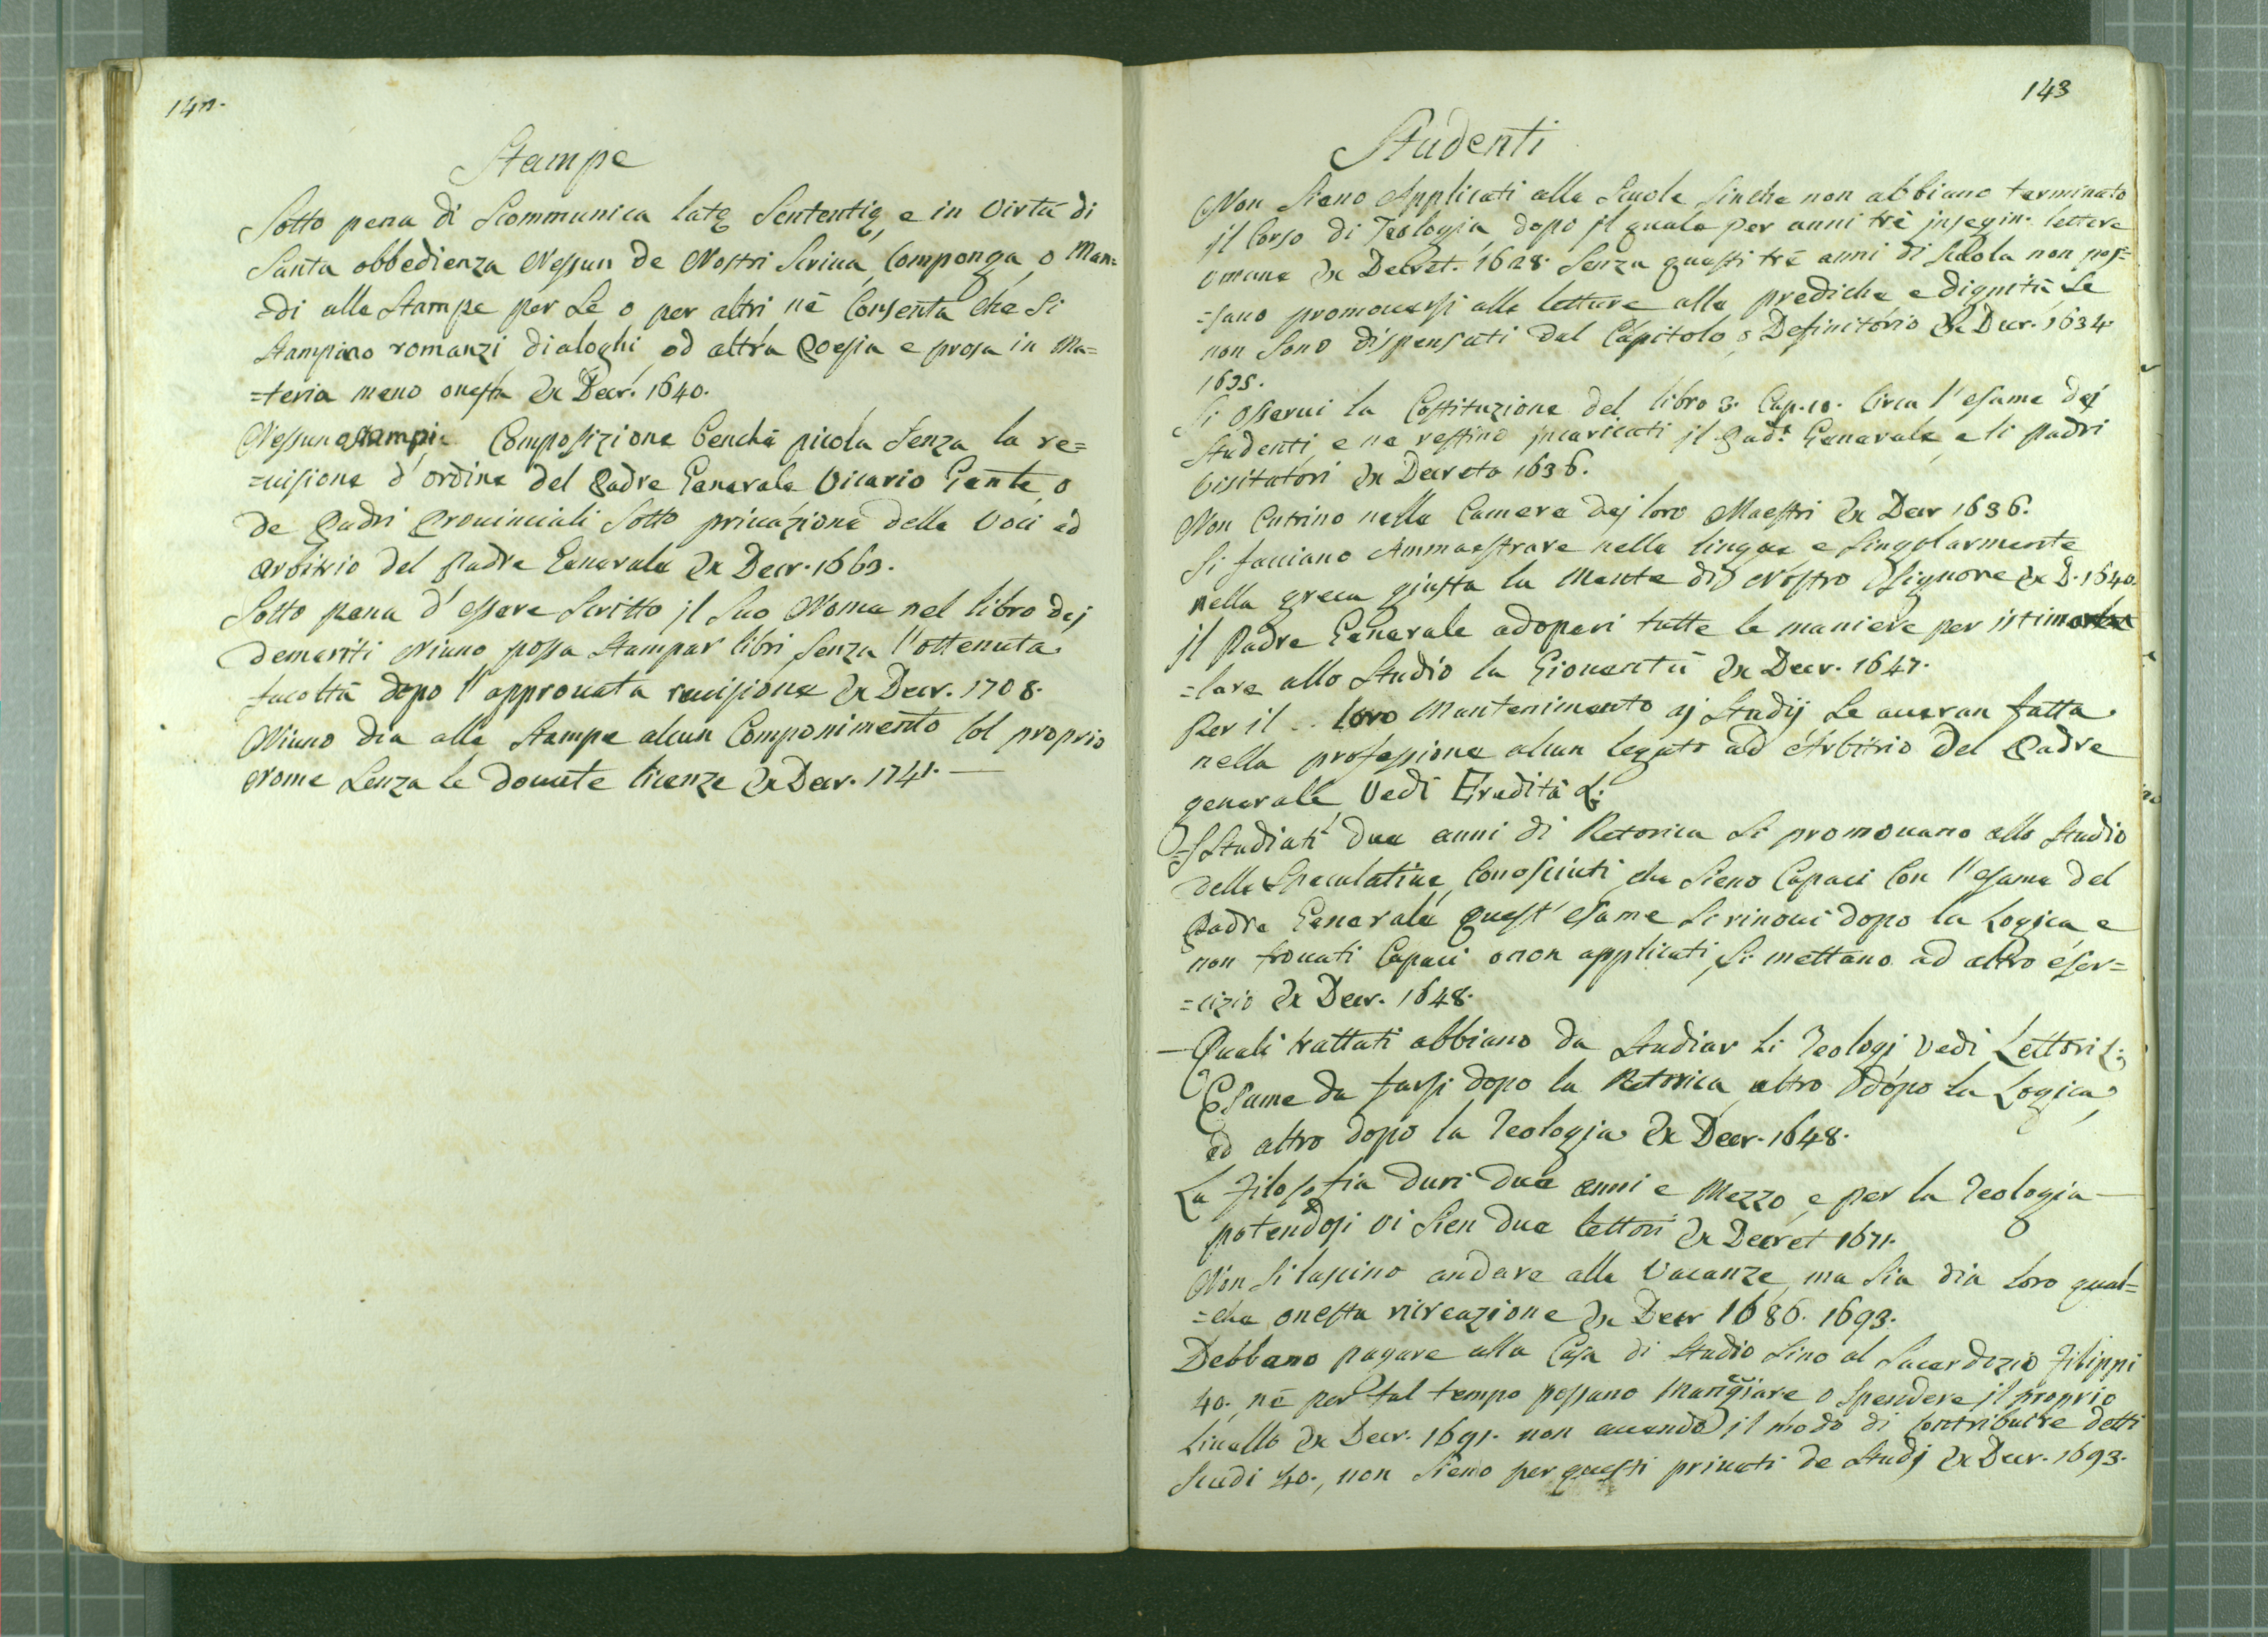 142.
Stampe
Sotto pena di Scommunica latę Sententię, e in Virtù di
Santa obbedienza Nessun de Nostri Scriva, Componga, o Man=
=di alle Stampe per Sè o per altri nè Consenta che Si
Stampino romanzi dialoghi, od altra Poesia e prosa in Ma=
=teria meno onesta Ex Decr. 1640.
Nessuno stampi Composizione benchè picola Senza la re=
=uisione d'ordine del Padre Generale Vicario Gente, o
de Padri Prouinciali Sotto priuazione delle Voci ad
Arbitrio del Padre Generale Ex Decr. 1663.
Sotto pena d'essere Scritto jl Suo Nome nel libro dej
demeriti Niuno possa Stampar libri Senza l'ottenuta
facoltà dopo l'approuata reuisione Ex Decr. 1708.
Niuno dia alle Stampe alcun Componimento Col proprio
Nome Senza le douute licenze Ex Decr. 1741. —
143
Studenti
Non Sieno Applicati alle Scuole Sinche non abbiano terminato
jl Corso di Teologia, dopo jl quale per anni trè jnsegin. lettere
umane Ex Decret. 1628. Senza questi trè anni di Scuola non pos=
=sano promouersi alle letture alle prediche e dignità Se
non Sono dispensati dal Capitolo, o Definitorio Ex Decr. 1634.
1635.
Si osserui la Costituzione del libro 3. Cap. 10. Circa l'esame dej
Studenti, e ne restino jncaricati jl Pad.e Generale, e li Padri
Visitatori Ex Decreto 1636.
Non Entrino nelle Camere dej loro Maestri Ex Decr 1636.
Si facciano Ammaestrare nelle lingue e Singolarmente
nella greca giusta la Mente di Nostro Signore Ex D. 1640.
jl Padre Generale adoperi tutte le maniere per istimo
=lare allo Studio la Giouentù Ex Decr. 1647.
Per il .. loro Mantenimento aj Studij Se aueran fatta
nella professione alcun legato ad Arbitrio del Padre
generale, Vedi Eredità L:
=Studiati due anni di Retorica Si promouano allo Studio
delle Speculatiue, Conosciuti che Sieno Capaci Con l'esame del
Padre Generale, quest'esame Si rinoui dopo la Logica e
non trouati Capaci o non applicati, Si mettano ad altro eser=
=cizio Ex Decr. 1648.
— Quali trattati abbiano da Studiar Li Teologi Vedi Lettori L:
Esame da farsi dopo la Retorica, altro dopo la Logica,
ed altro dopo la Teologia Ex Decr. 1648.
La Filosofia duri due anni e Mezzo, e per la Teologia —
potendosi vi Sien due lettori Ex Decret 1671.
Non Si lascino andare alle Vacanze, ma Sia dia loro qual=
=che onesta ricreazione Ex Decr 1686. 1693.
Debbano pagare alla Casa di Studio Sino al Sacerdozio Filippi
40. nè per tal tempo possano Mangiare o Spendere jl proprio
Liuello Ex Decr. 1691. non auendo jl modo di Contribuire detti
Scudi 40., non Sieno per questi priuati de Studj Ex Decr. 1693.